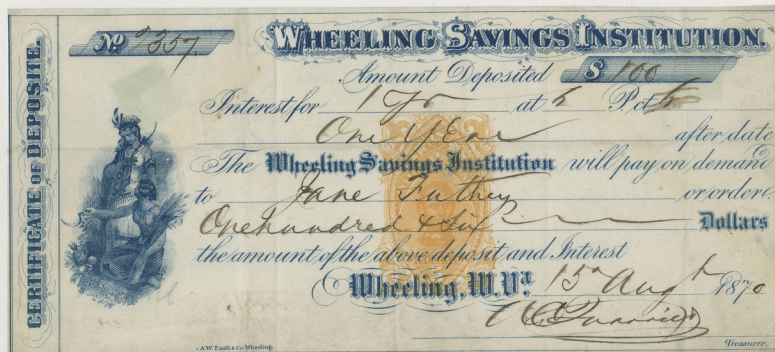 CERTIFICATE OF DEPOSITE.
No 7357
WHEELING SAVINGS INSTITUTION.
Amount Deposited $ 100
Interest for 1 yr at 6 P ct $6
One Year after date
The Wheeling Savings Institution will pay on demand
to Jane Futhey or order
One hundred & Six Dollars
the amount of the above deposit and Interest
Wheeling, W. Va. 15 Augt 1870
Treasurer.
A.W. Paull & Co. Wheeling.